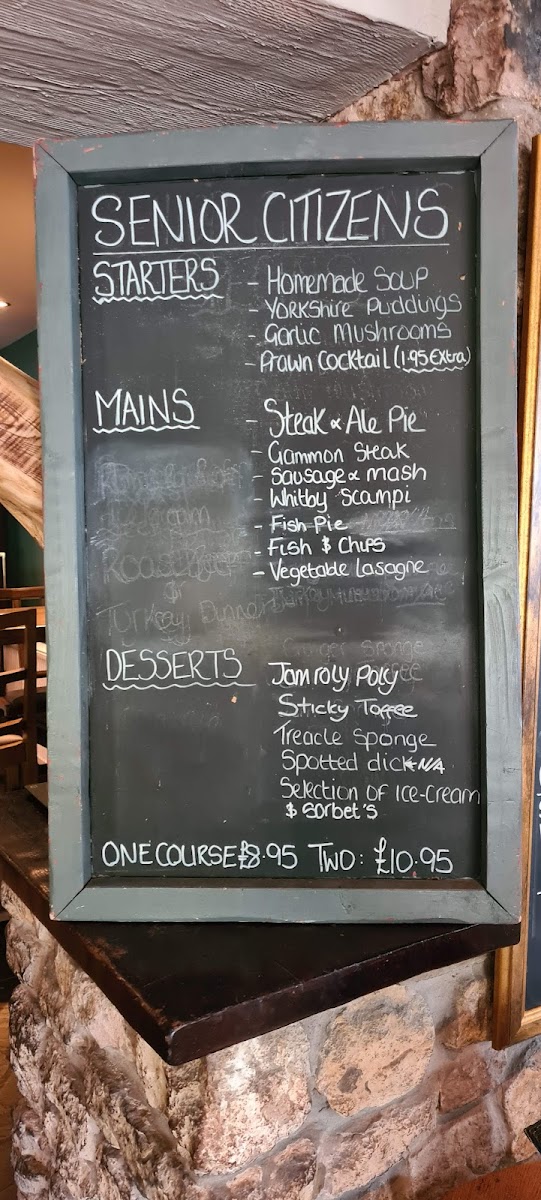 SENIOR CITIZENS
STARTERS - Homemade Soup
- Yorkshire Puddings
- Garlic Mushrooms
- Prawn Cocktail (1.95 Extra)
MAINS - Steak & Ale Pie
- Gammon Steak
- Sausage & Mash
- Whitby Scampi
- Fish Pie
- Fish & Chips
- Vegetable Lasagne
Turkey Dinner
DESSERTS Jam roly Poly
Sticky Toffee
Treacle Sponge
Spotted dick N/A
Selection of Ice-Cream
& Sorbet's
ONE COURSE £8.95 TWO: £10.95